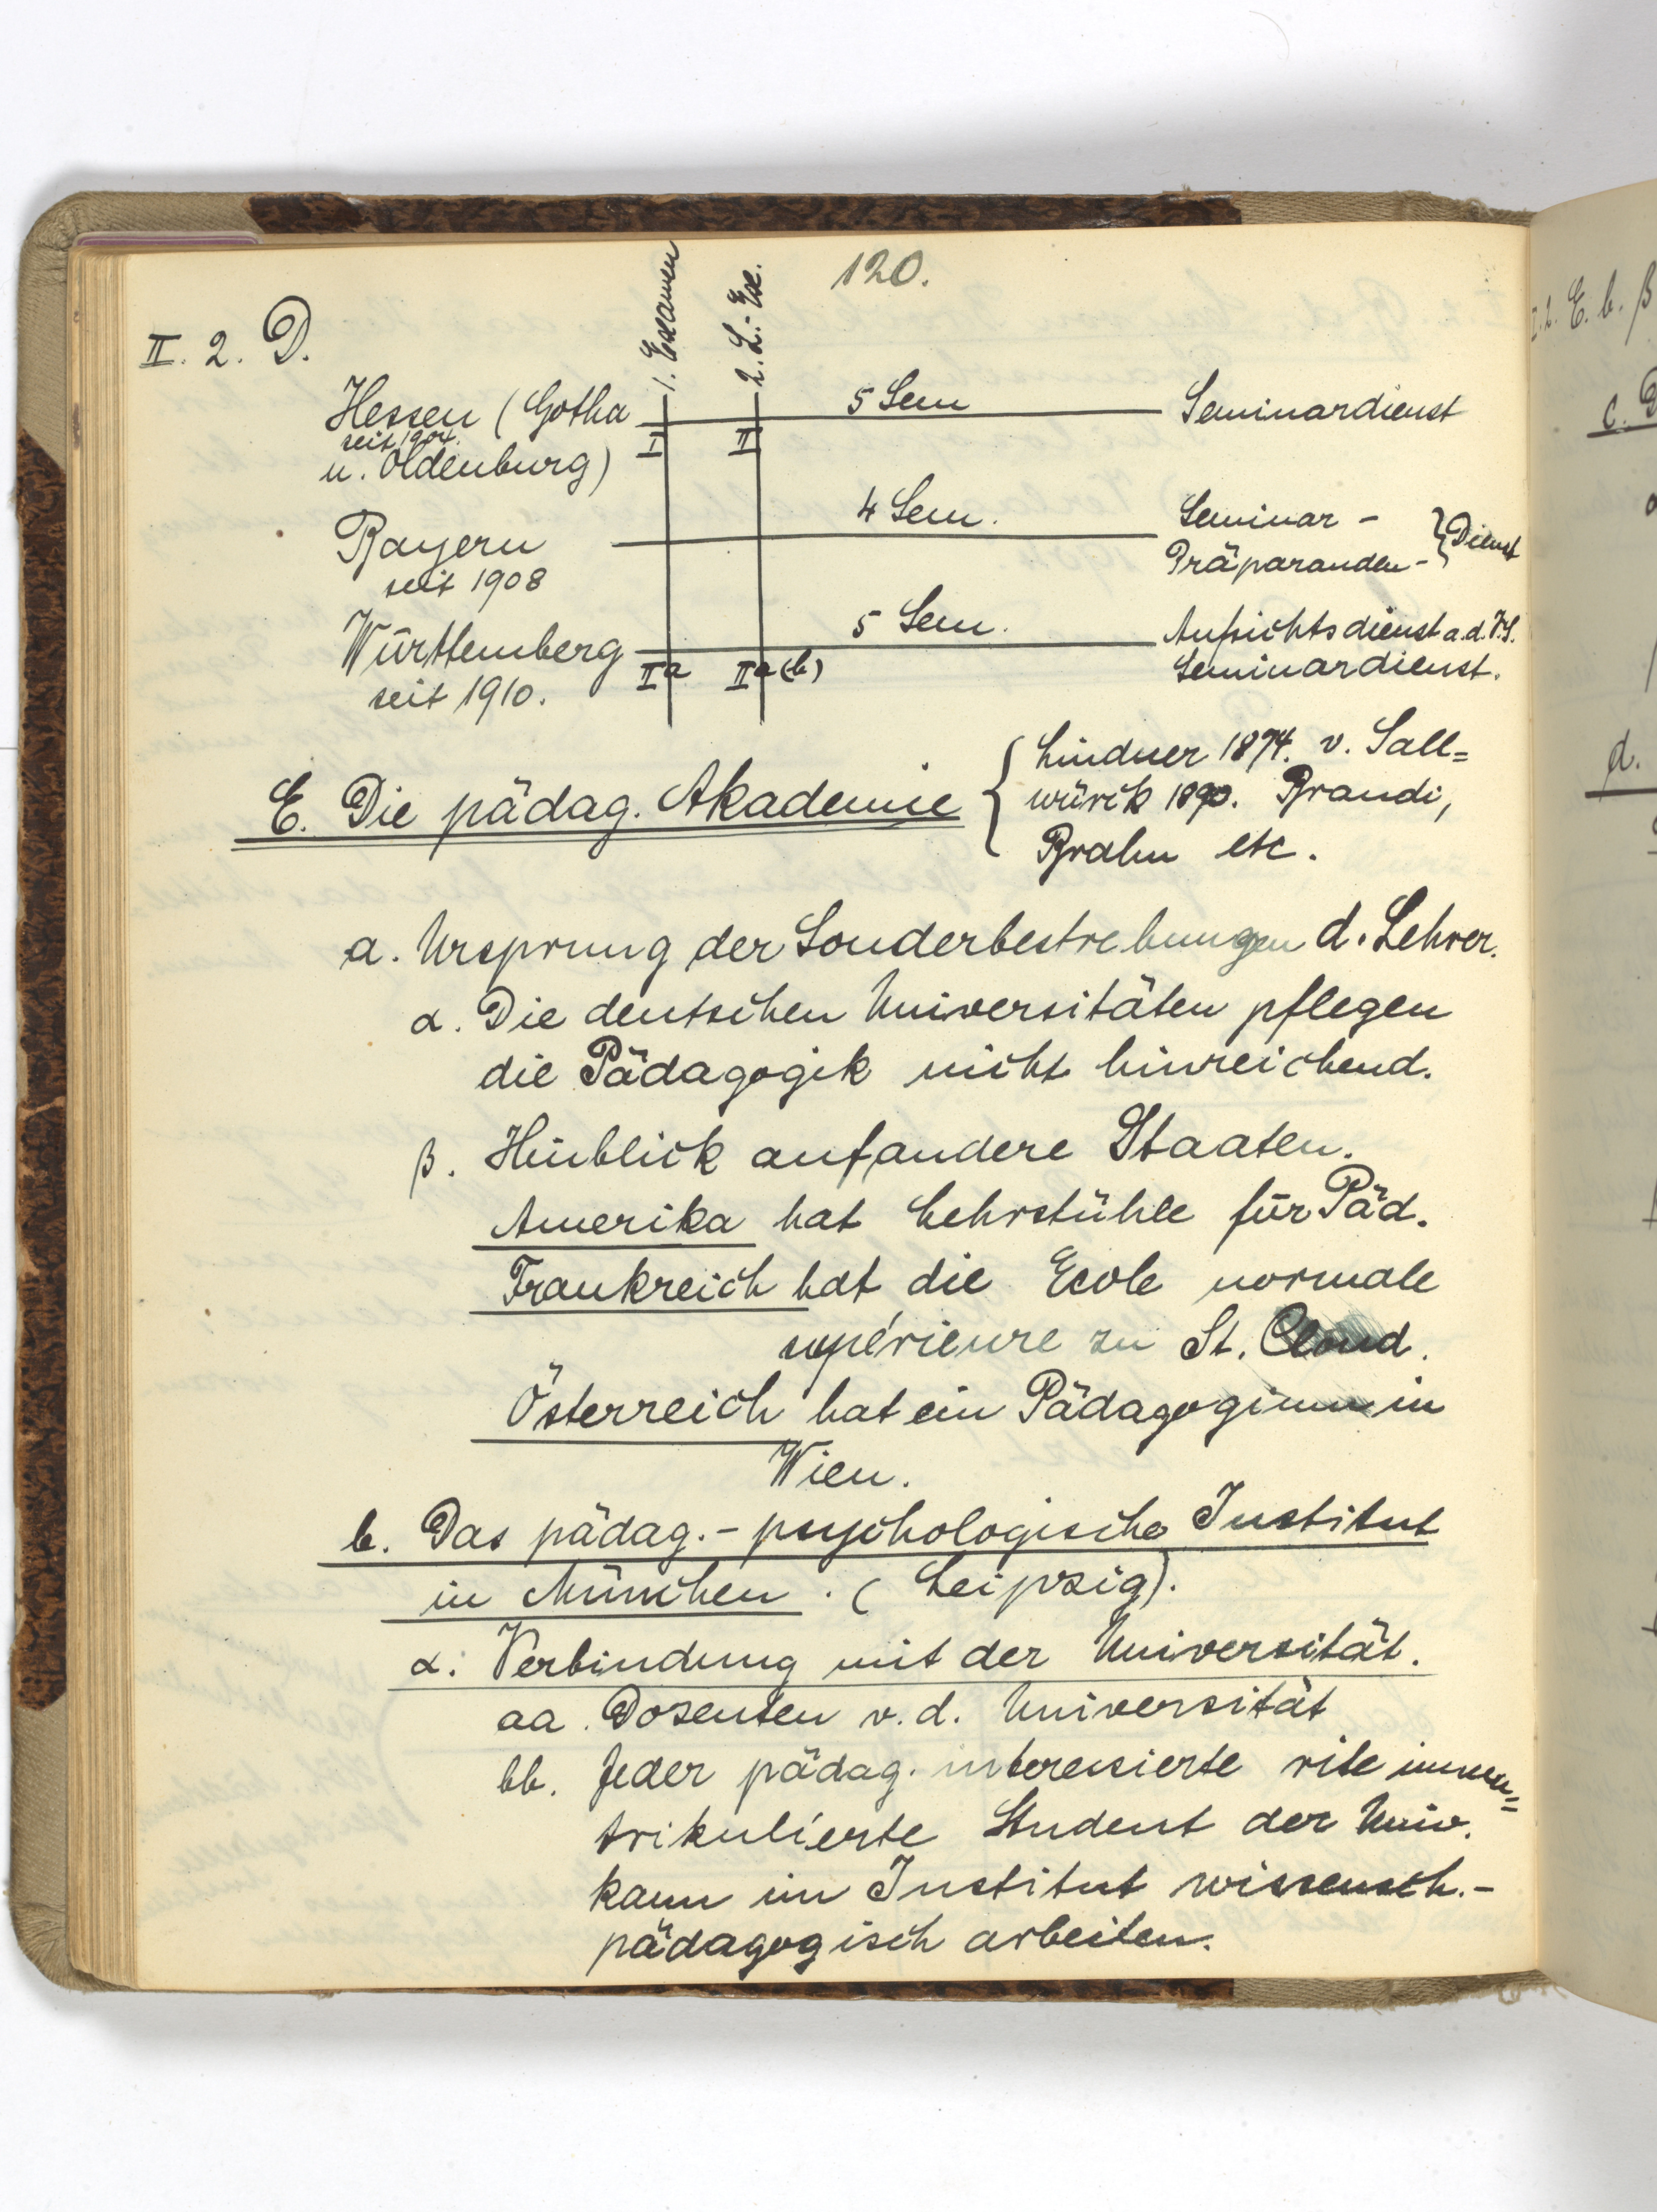 120.
II. 2. D.
1. Examen
2. L.-Ex.
Hessen (Gotha
seit 1904.
u. Oldenburg)
I II
5 Sem
Seminardienst
Bayern
seit 1908
4 Sem.
Seminar -
Präparanden - } Dienst
Württemberg
seit 1910.
IIa IIa(b)
5 Sem.
Aufsichtsdienst a. d. V.S.
Seminardienst.
E. Die pädag. Akademie
{ Lindner 1874. v. Sall=
würck 1890. Brandi,
Brahn etc.
a. Ursprung der Sonderbestrebungen d. Lehrer.
α. Die deutschen Universitäten pflegen
die Pädagogik nicht hinreichend.
β. Hinblick auf andere Staaten.
Amerika hat Lehrstühle für Päd.
Frankreich hat die Ecole normale
supérieure zu St. Cloud.
Österreich hat ein Pädagogium in
Wien.
b. Das pädag.-psychologische Institut
in München. (Leipzig).
α. Verbindung mit der Universität.
aa. Dozenten v. d. Universität
bb. Jeder pädag. interessierte rite imma=
trikulierte Student der Univ.
kann im Institut wissensch.-
pädagogisch arbeiten.
I.2. E. b. β
c.
d.